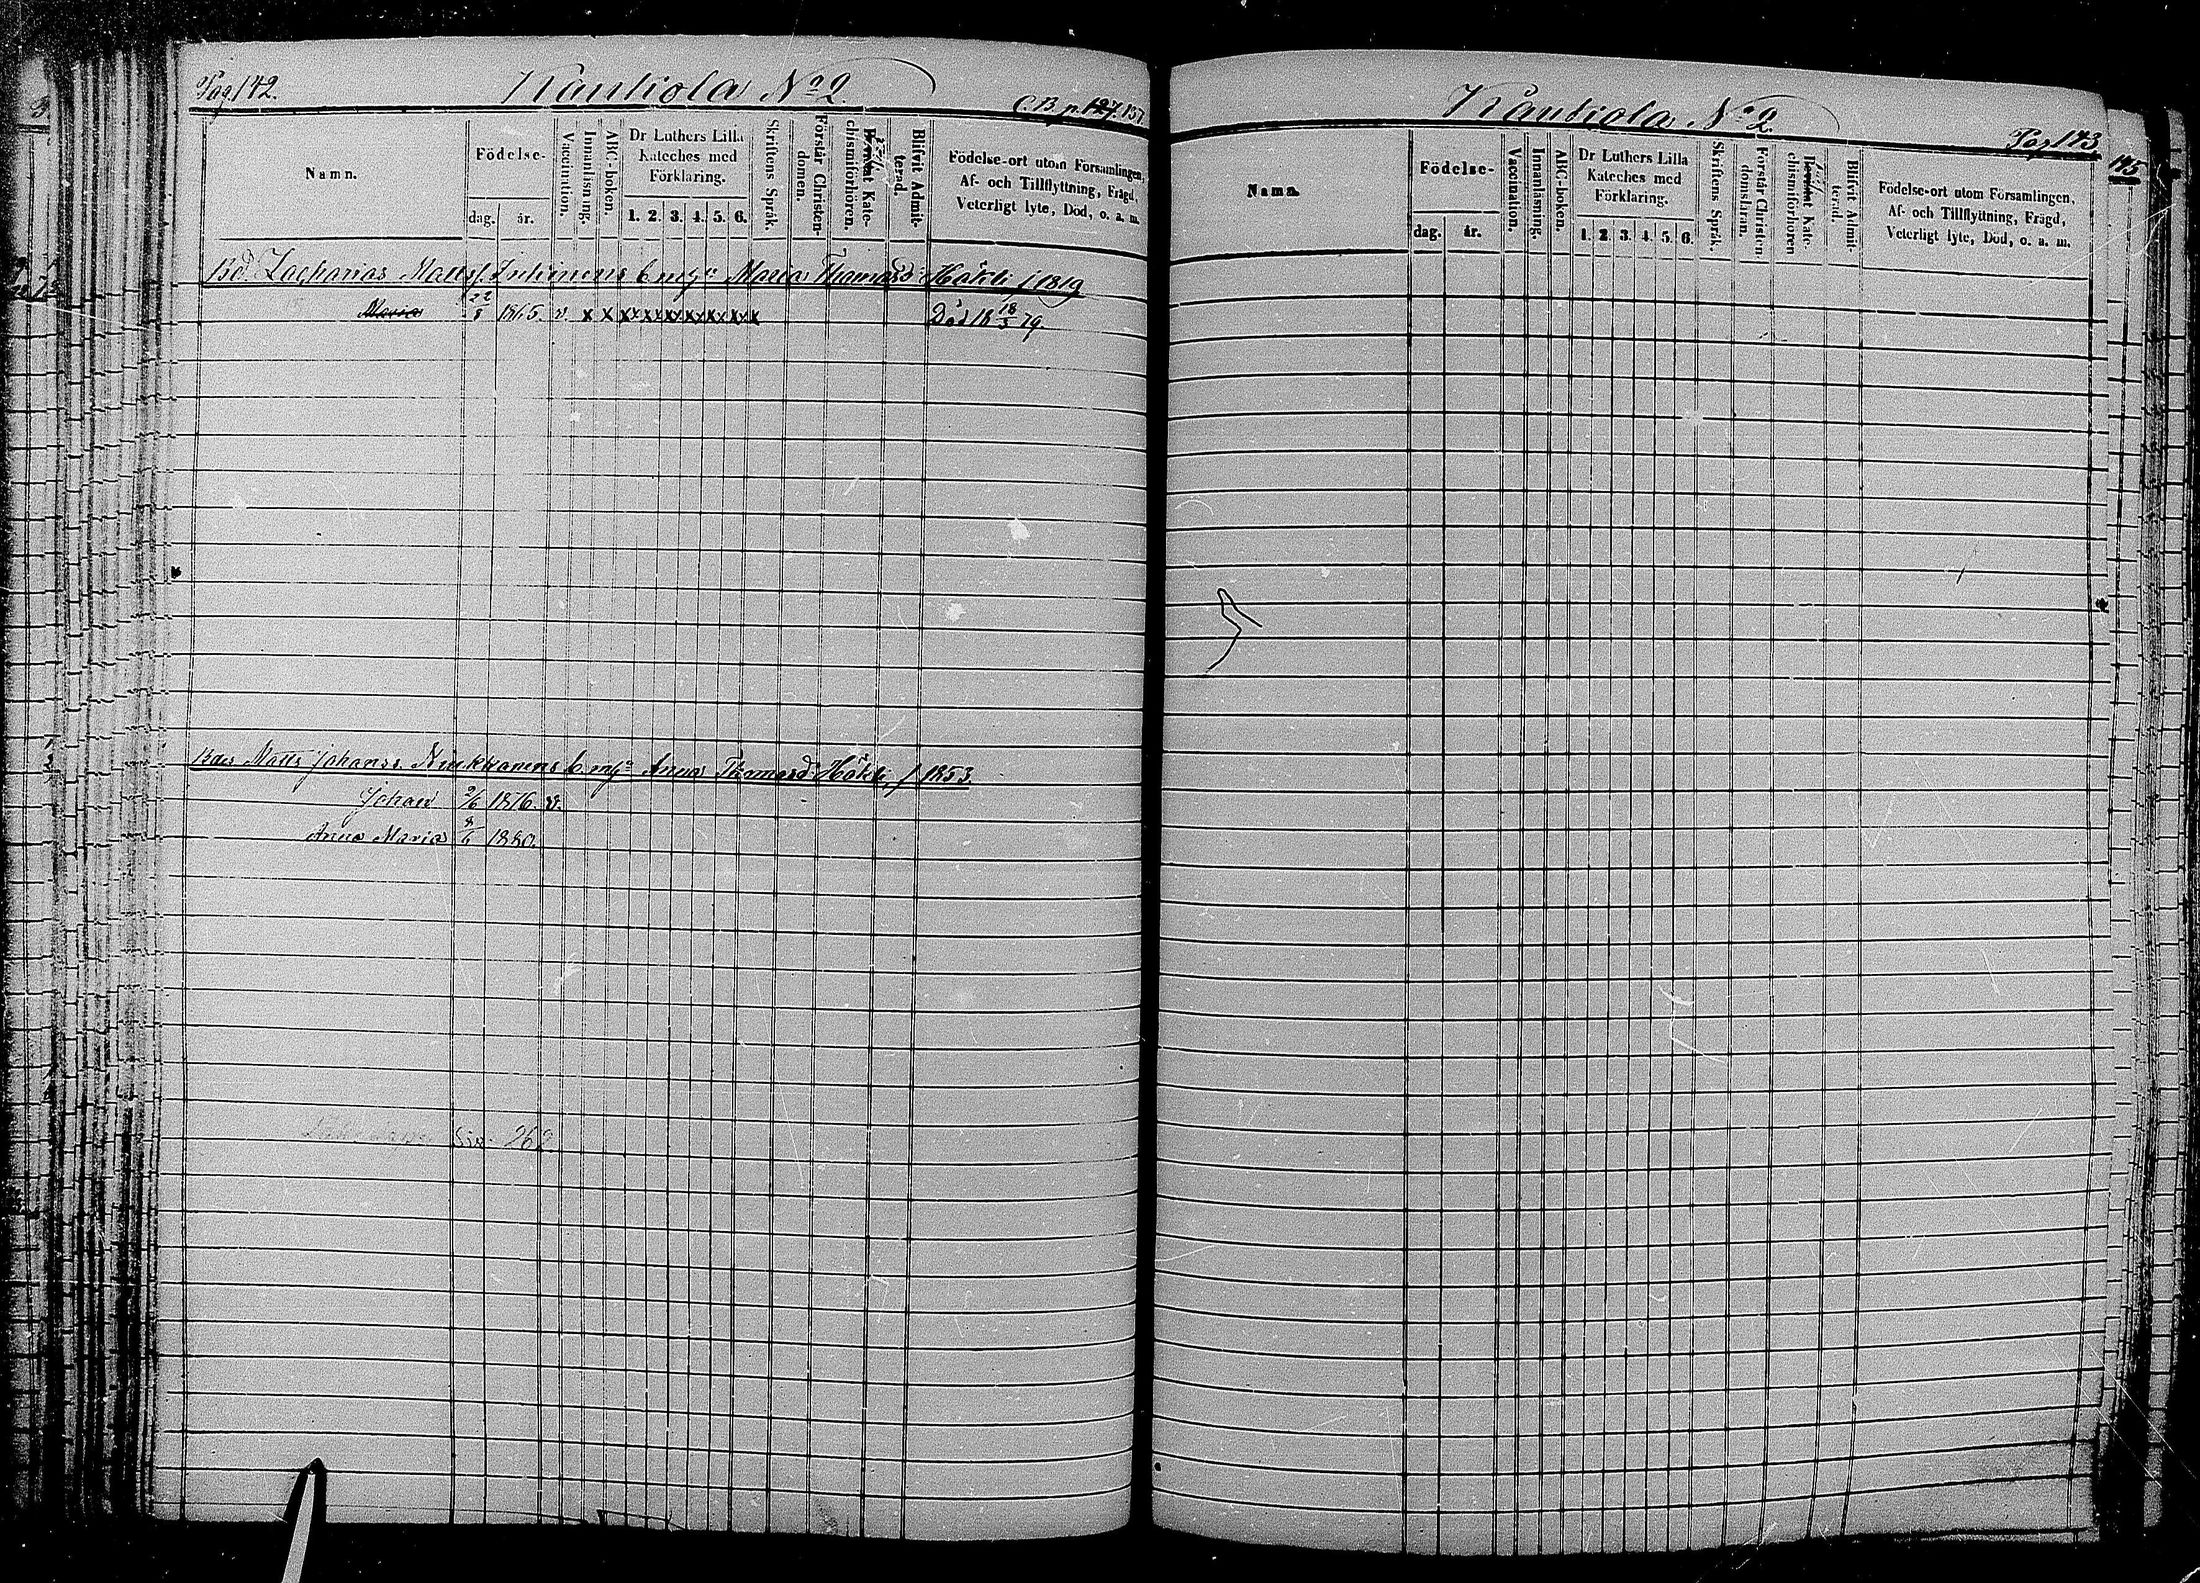 Pag. 142.
Kautiola No 2.
C. B. p. 127. 157
Namn.
Födelse-
dag.
år.
Vaccination.
Innanläsning.
ABC-boken.
Dr Luthers Lilla
Kateches med
Förklaring.
1. 2. 3. 4. 5. 6.
Skriftens Språk.
Förstår Christen-
domen.
Bevistat Kate-
chismiförhören.
Blifvit Admit-
terad.
Födelse-ort utom Församlingen,
Af- och Tillflyttning, Frägd,
Veterligt lyte, Död, o. a. m.
Bd. Zacharias Mattss. Inkinens b. m. ha Maria Thomasd. Häkli f 1819
Maria 22/8 1865. v. x x x x x x x x x x x x x x x Död 18 18/3 79.
Matts Johanss. Nuikkanens b. m. ha Anna Thomasd. Häkli, f 1853.
Johan 2/6 1876. v.
Anna Maria 8/6 1880.
Siv. 262
Kautiola No 2.
Pag 143
Namn.
Födelse-
dag.
år.
Vaccination.
Innanläsning.
ABC-boken.
Dr Luthers Lilla
Kateches med
Förklaring.
1. 2. 3. 4. 5. 6.
Skriftens Språk.
Förstår Christen
domsläran.
Bevistat Kate-
chismiförhören
Blifvit Admit-
terad.
Födelse-ort utom Församlingen,
Af- och Tillflyttning, Frägd,
Veterligt lyte, Död, o. a. m.
145